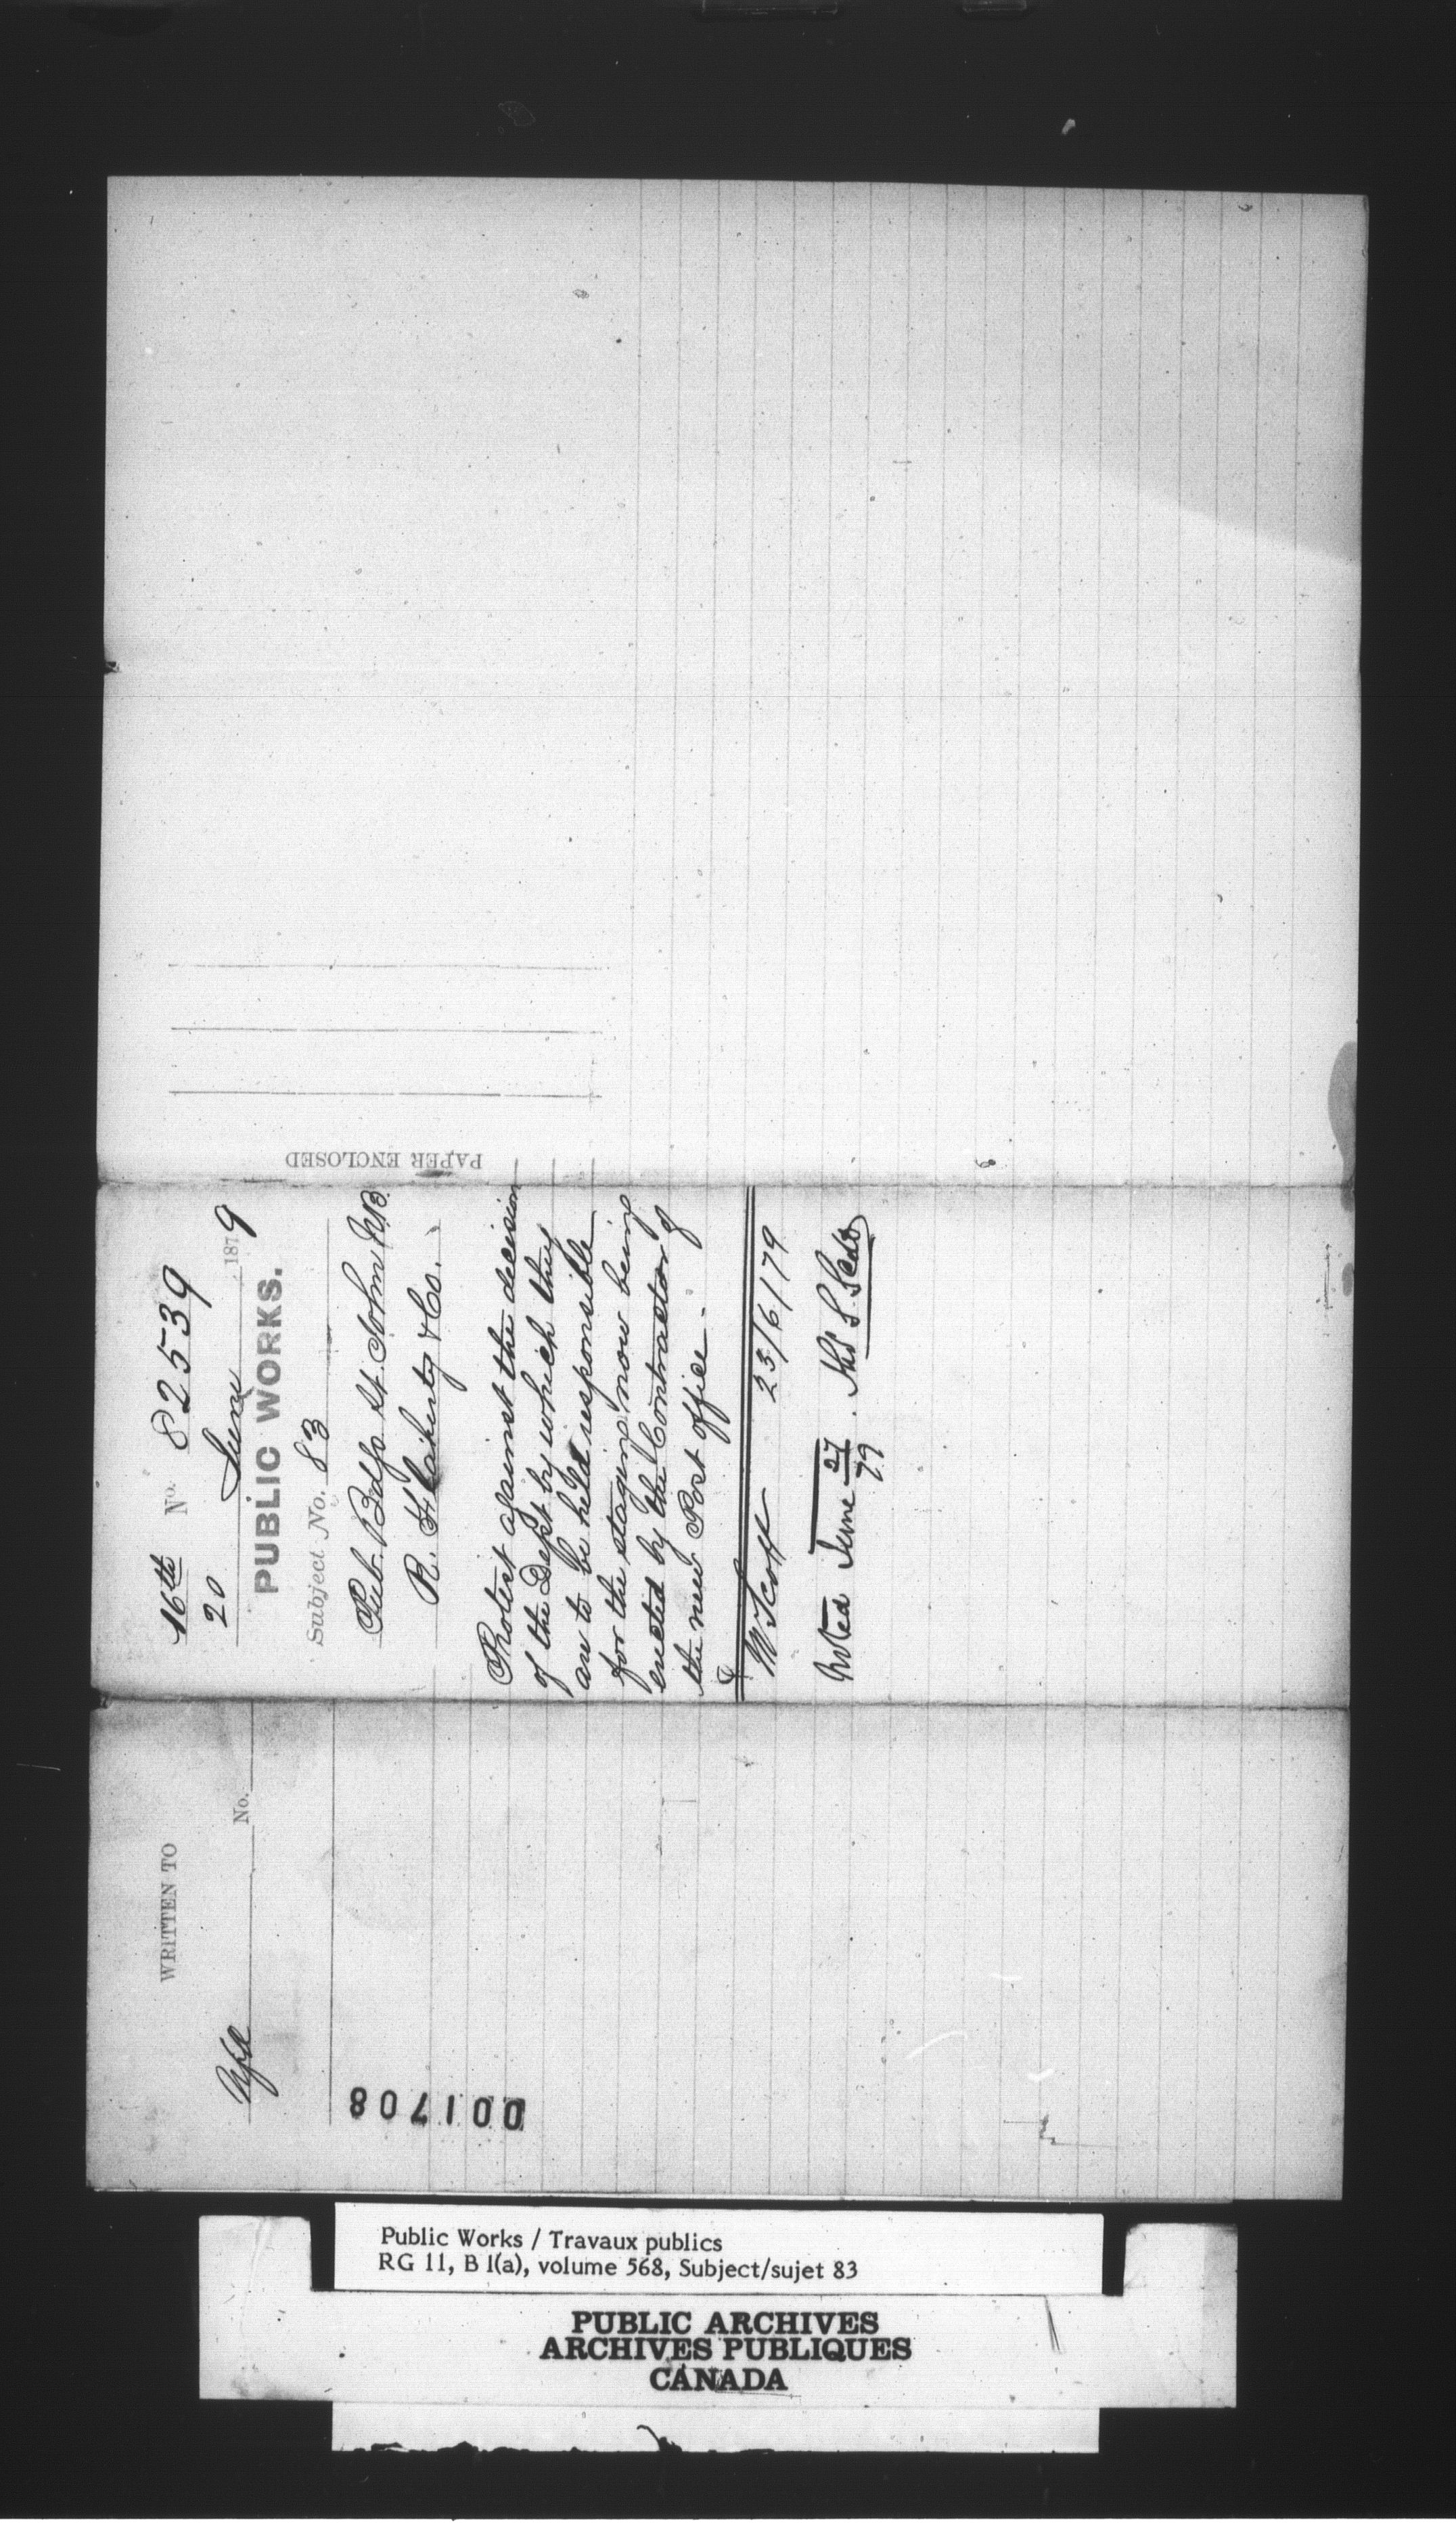 16th No. 82539
20 June 1879
PUBLIC WORKS.
Subject No. 83
Pub. Bdgs. St. John N.B.
R. Flaherty & Co.
Protest against the decision
of the Dept by which they
are to be held responsible
for the staging now being
erected by the Contractor of
the new Post office.
W Scott 23/6/79
Noted June 27/79.
PAPER ENCLOSED
WRITTEN TO
No.
001708
Public Works / Travaux publics
RG 11, B 1(a), volume 568, Subject/sujet 83
PUBLIC ARCHIVES
ARCHIVES PUBLIQUES
CANADA